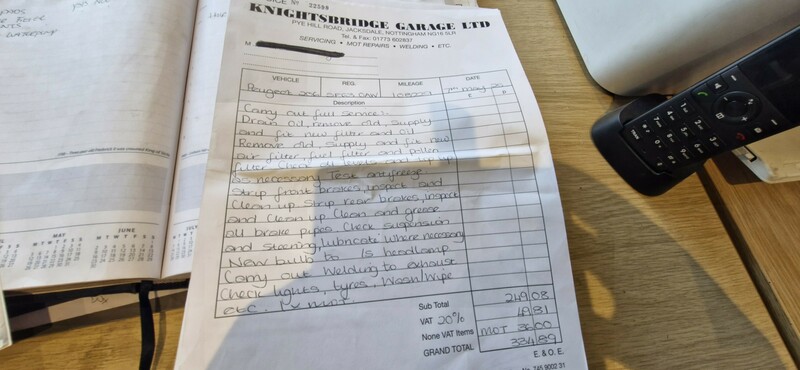 INVOICE No 22598
KNIGHTSBRIDGE GARAGE LTD
PYE HILL ROAD, JACKSDALE, NOTTINGHAM NG16 5LR
Tel. & Fax: 01773 602837
SERVICING • MOT REPAIRS • WELDING • ETC
M
VEHICLE REG. MILEAGE DATE
Peugeot 7th May
Description £ p
Carry out full service:
Drain oil, remove old, supply
and fit new filter and oil
Remove old, supply and fit new
air filter, fuel filter and pollen
filter Check all levels and top up
as necessary Test antifreeze
Strip front brakes, inspect and
Clean up Strip rear brakes, inspect
and Clean up Clean and grease
all brake pipes Check suspension
and steering, lubricate where necessary
New bulb to 1s headlamp
Carry out Welding to exhaust
Check lights, tyres, Wash/Wipe
etc. Fx Mot.
Sub Total 249 08
VAT 20% 49 81
None VAT Items MOT 36 00
GRAND TOTAL 334 89
E. & O. E.
No. 745 9002 31
MAY
JUNE